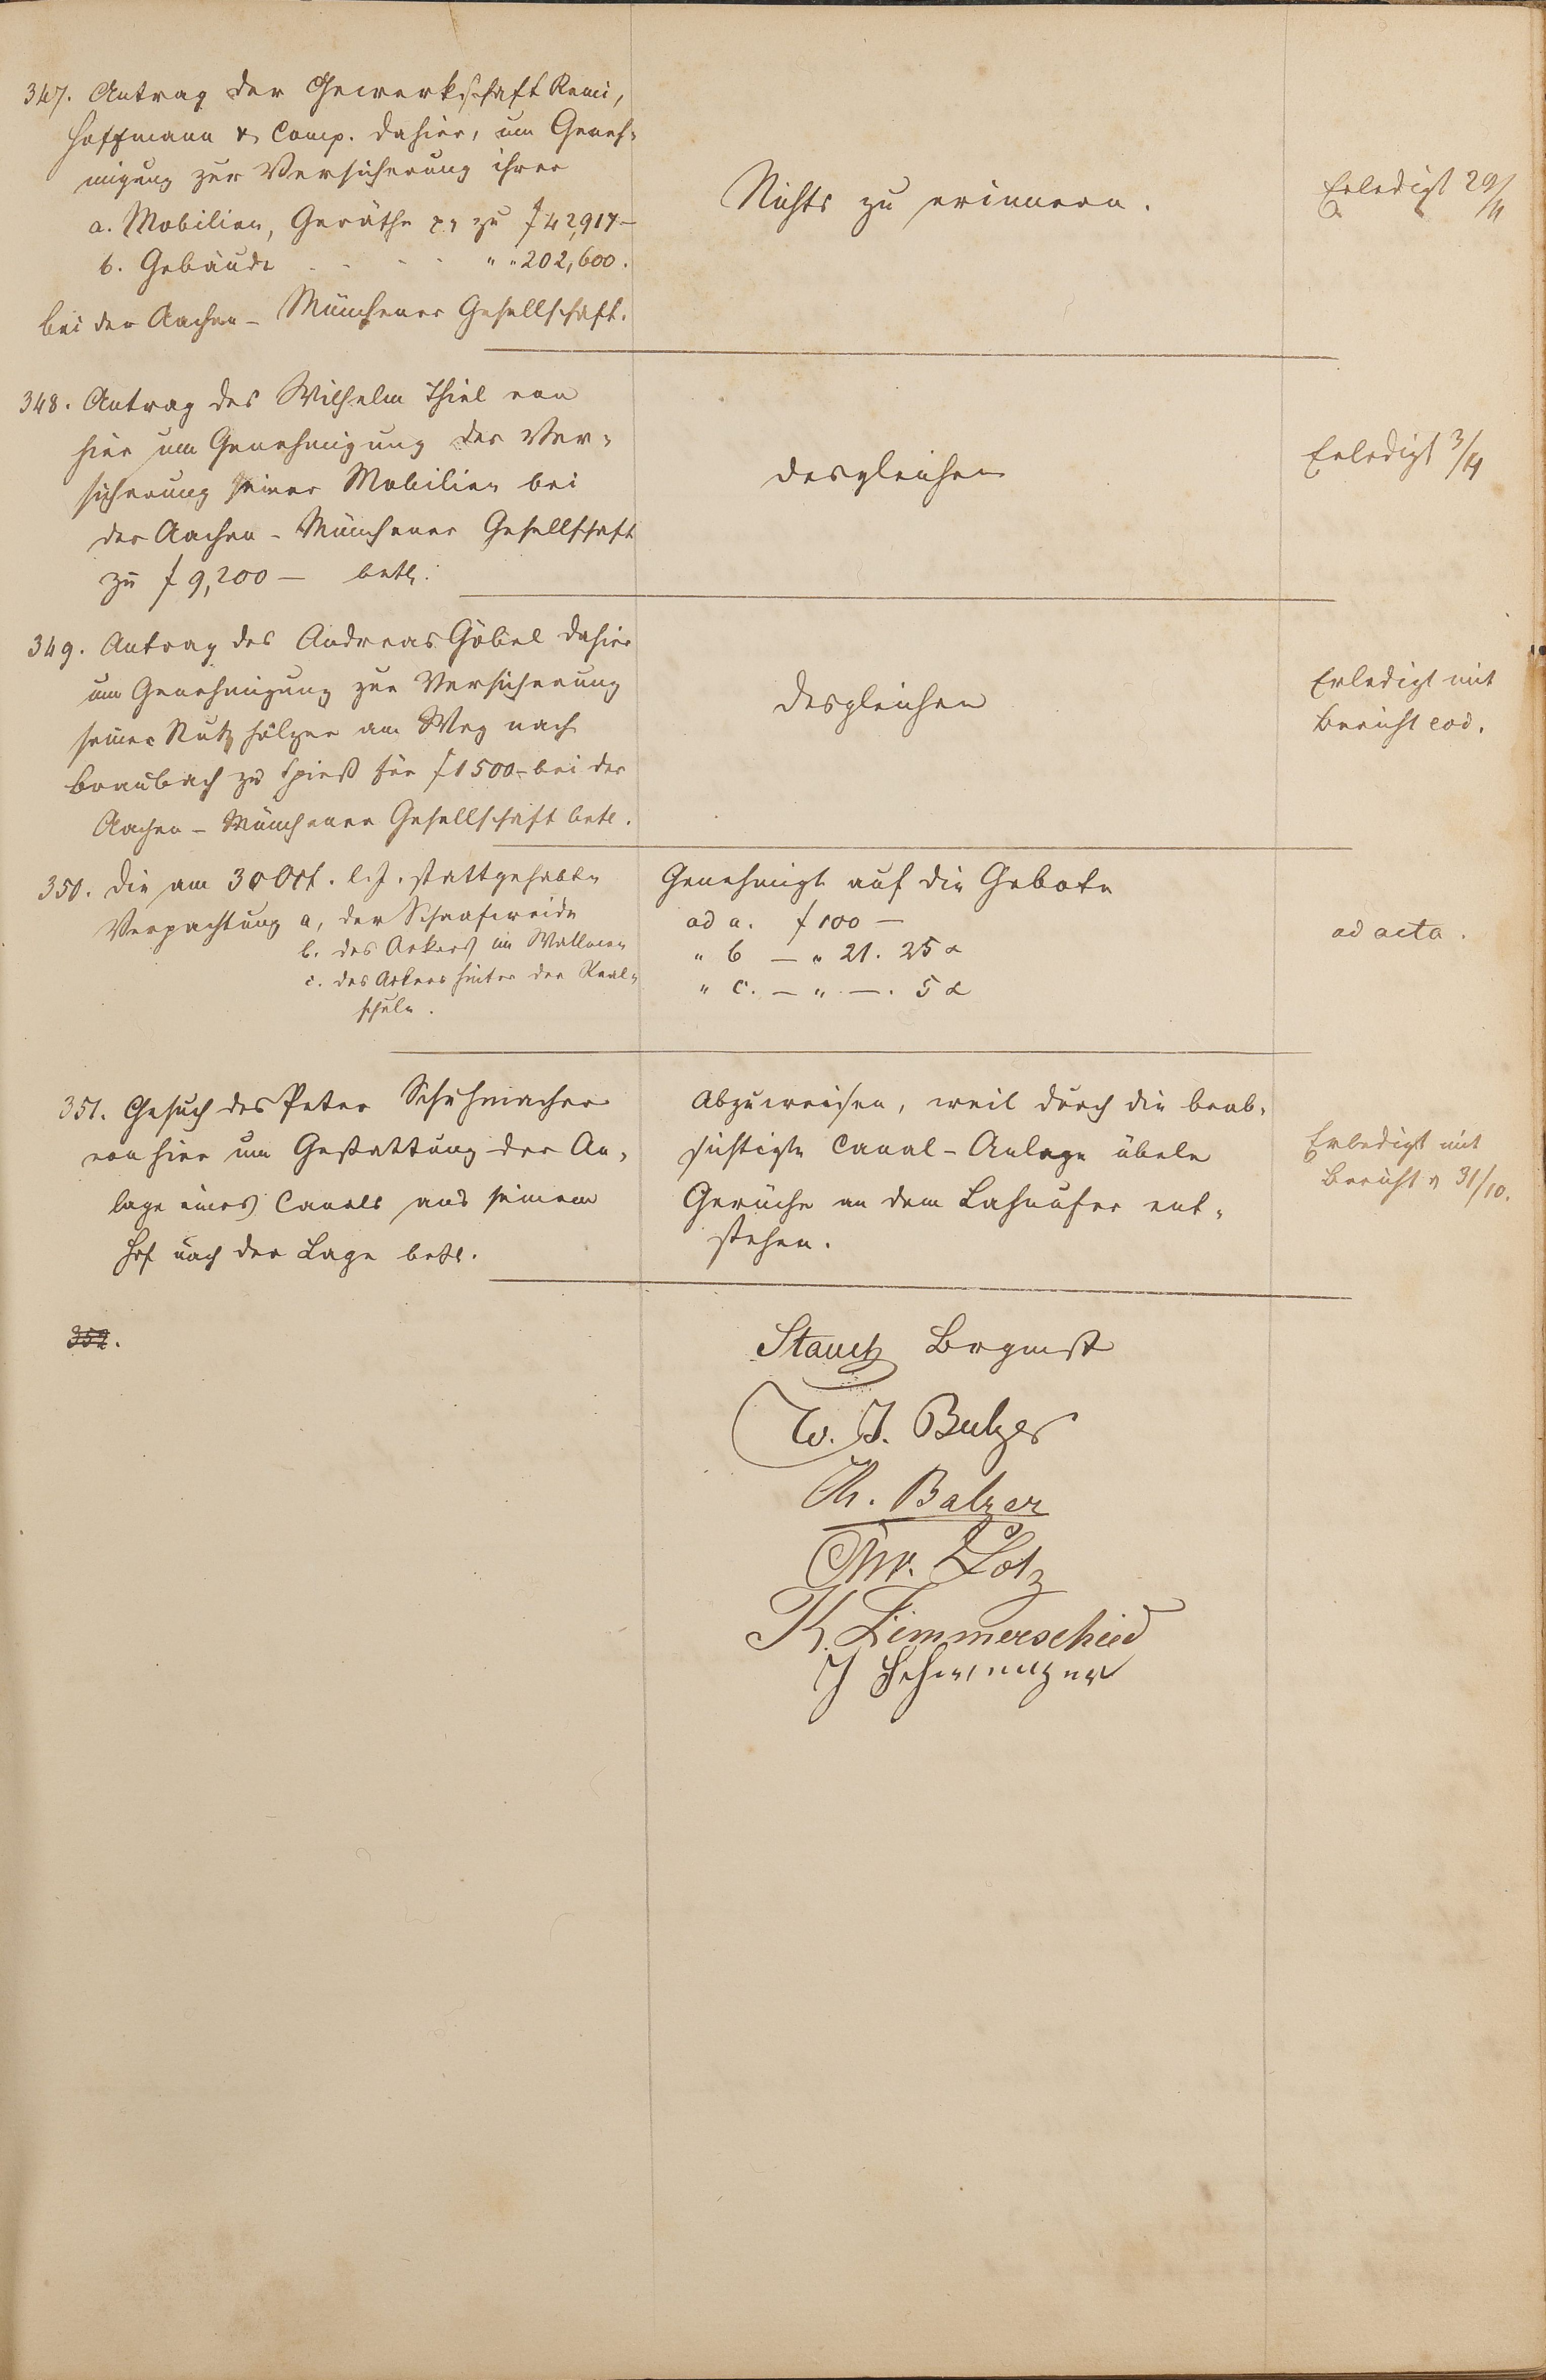 347. Antrag der Gewerkschaft Remi,
Hoffmann & Comp. dahier, um Geneh-
migung zur Versicherung ihrer
a. Mobilien, Geräthe pp zu f 42,917 —
b. Gebäude . . . . " " 202,600.
bei der Aachen - Münchener Gesellschaft.
Nichts zu erinnern.
Erledigt 29/11
348. Antrag des Wilhelm Thiel von
hier um Genehmigung der Ver-
sicherung seiner Mobilien bei
der Aachen - Münchener Gesellschaft
zu f 9,200 — betr.
desgleichen
Erledigt 3/11
349. Antrag des Andreas Göbel dahier
um Genehmigung zur Versicherung
seiner Nutzhölzer am Weg nach
Braubach zu Spieß für f 1500 - bei der
Aachen - Münchener Gesellschaft betr.
desgleichen
Erledigt mit
Bericht eod.
350. Die am 30 Oct. l. J. stattgehabte
Verpachtung a, der Schaafweide
b. des Ackers im
c. des Ackers hinter der Real-
schule.
Genehmigt auf die Gebote
ad a. f 100 —
" b — " 21. 25 x
" c. — " —. 5 x
ad acta.
351. Gesuch des Peter Schuhmacher
von hier um Gestattung der An-
lage eines Canals aus seinem
Hof nach der Lage betr.
Abzuweisen, weil durch die beab-
sichtigte Canal - Anlage übele
Gerüche an dem Lahnufer ent-
stehen.
Erledigt mit
Bericht v 31/10.
352.
Stautz Brgmst
W. J. Balzer
Ph. Balzer
Chr. Lotz
K. Zimmerschied
J Schweitzer